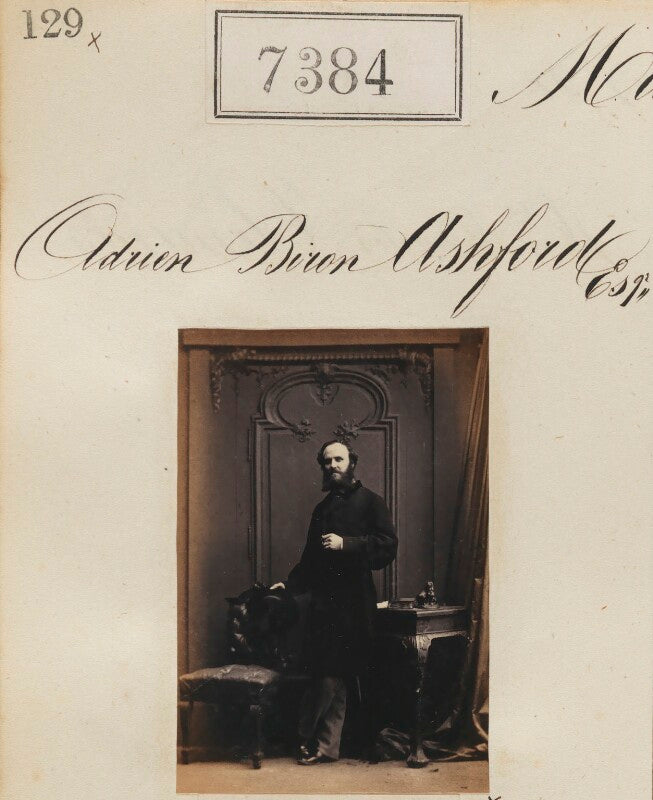 129 x
7384
Adrien Biron Ashford Esqr.